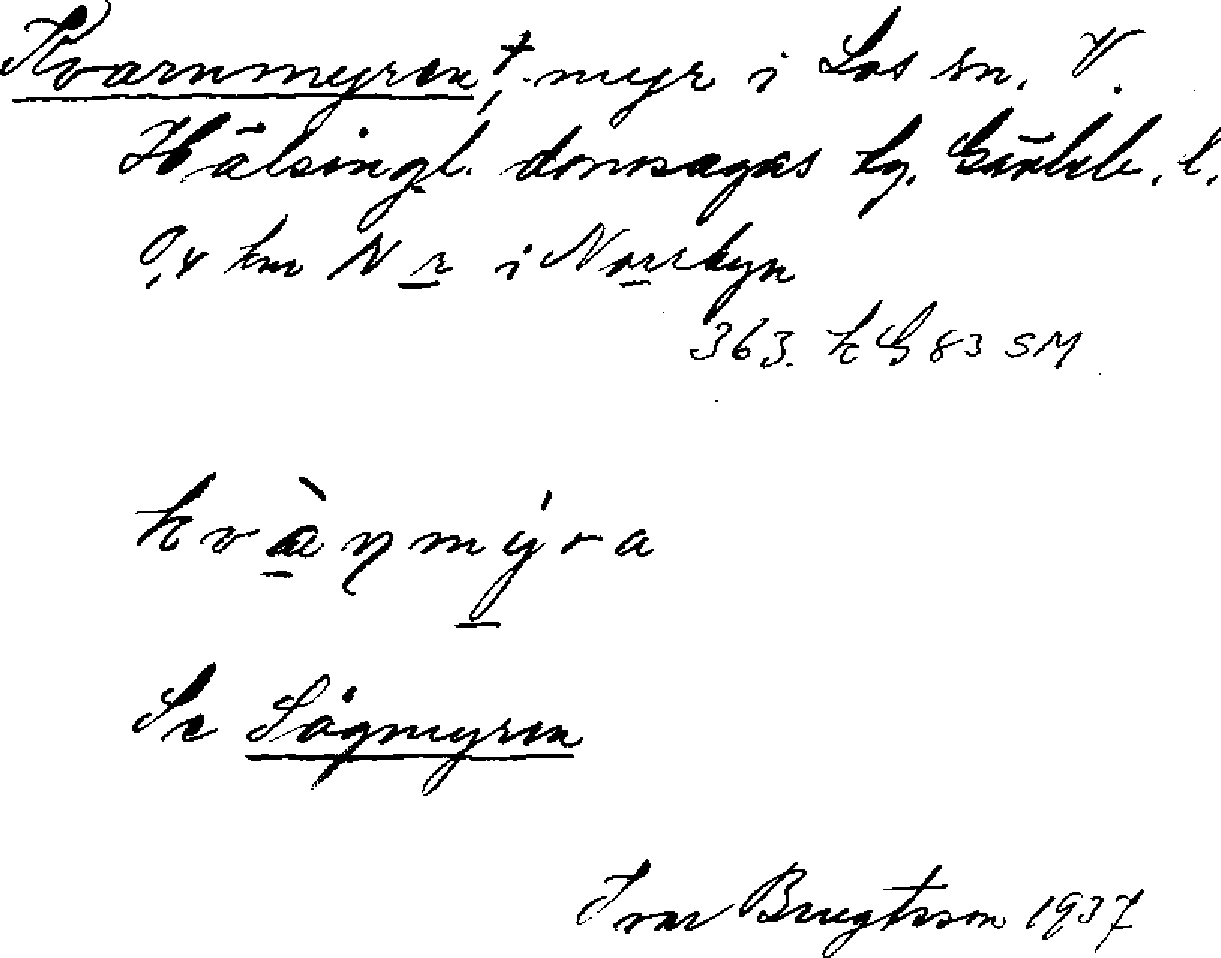 Kvarnmyren†, myr i Los sn. V.
Hälsingl. domsagas tg. Gävleb. l.
0,4 km N r i Norrbyn
363. k G 83 SM
kvàɳmýra
Se Sågmyren
Ivar Bengtsson 1937